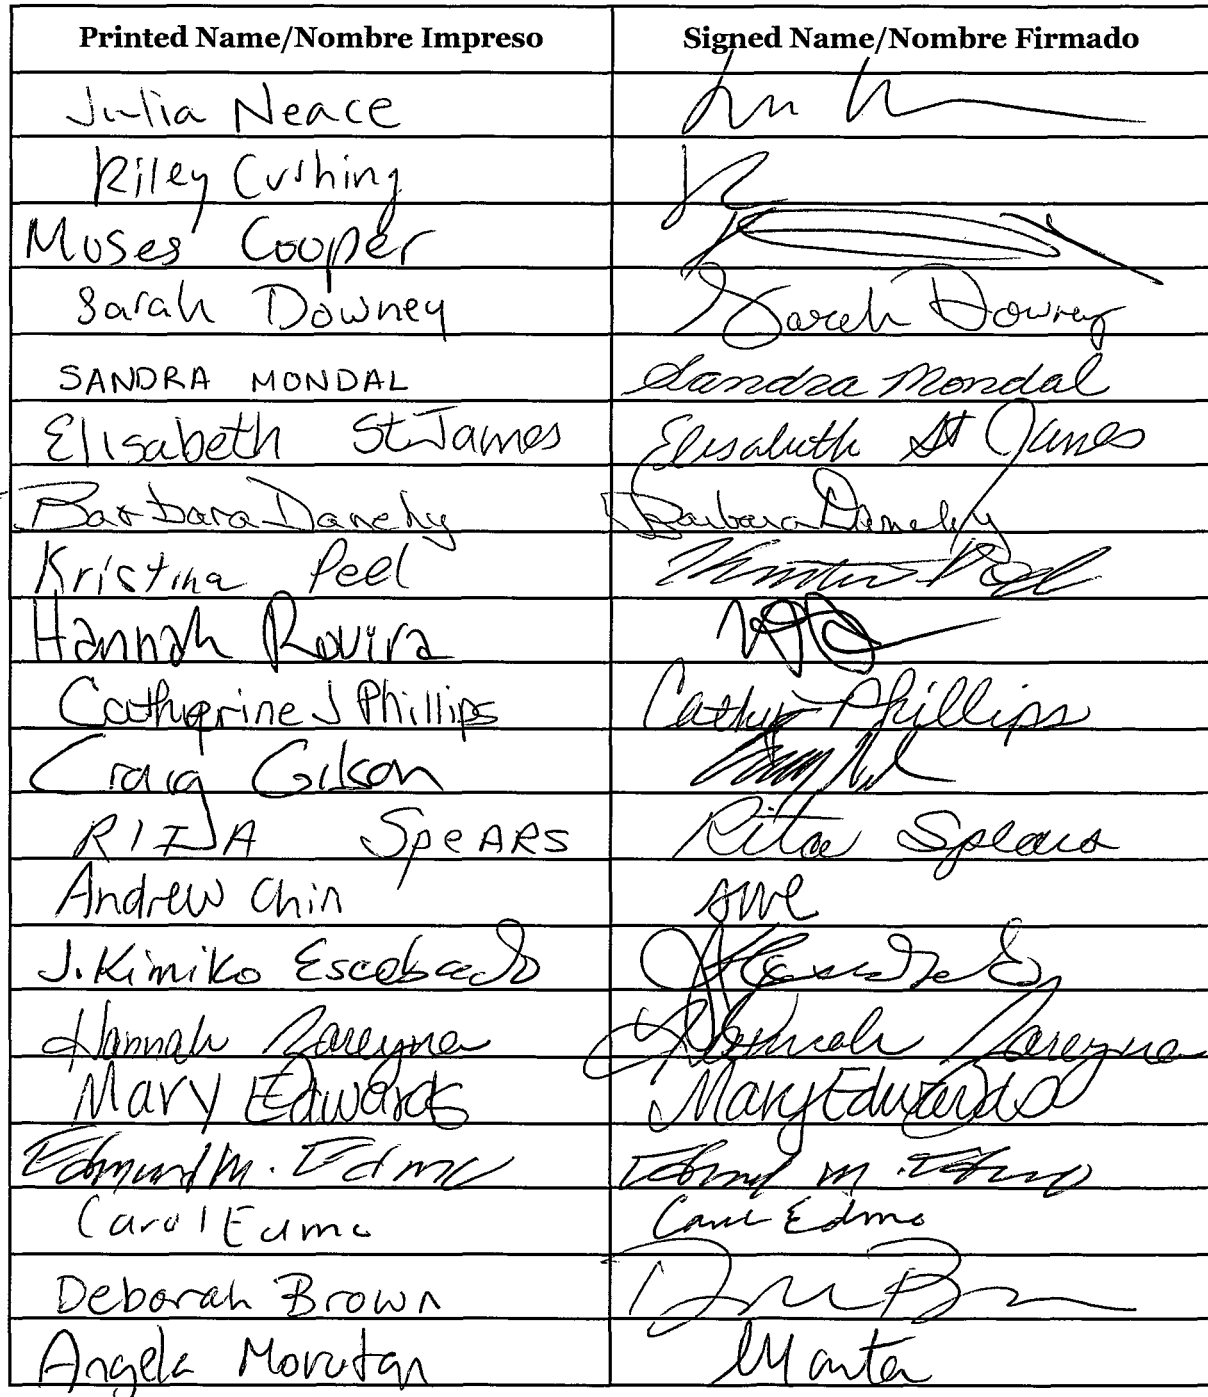 Printed Name/Nombre Impreso Signed Name/Nombre Firmado
Julia Neace
Riley Cushing
Moses Cooper
Sarah Downey Sarah Downey
SANDRA MONDAL Sandra Mondal
Elisabeth St James Elisabeth St James
Barbara Danehy Barbara Danehy
Kristina Peel
Hannah Rovira
Catherine J Phillips Cathy Phillips
Craig Gilson
RITA SpeARS Rita Spears
Andrew Chin
J. Kimiko Escobedo
Hannah Zareyna Hannah Zareyna
Mary Edwards Mary Edwards
Edmund M. Edmo Edmund M. Edmo
Carol Edmo Carol Edmo
Deborah Brown
Angela